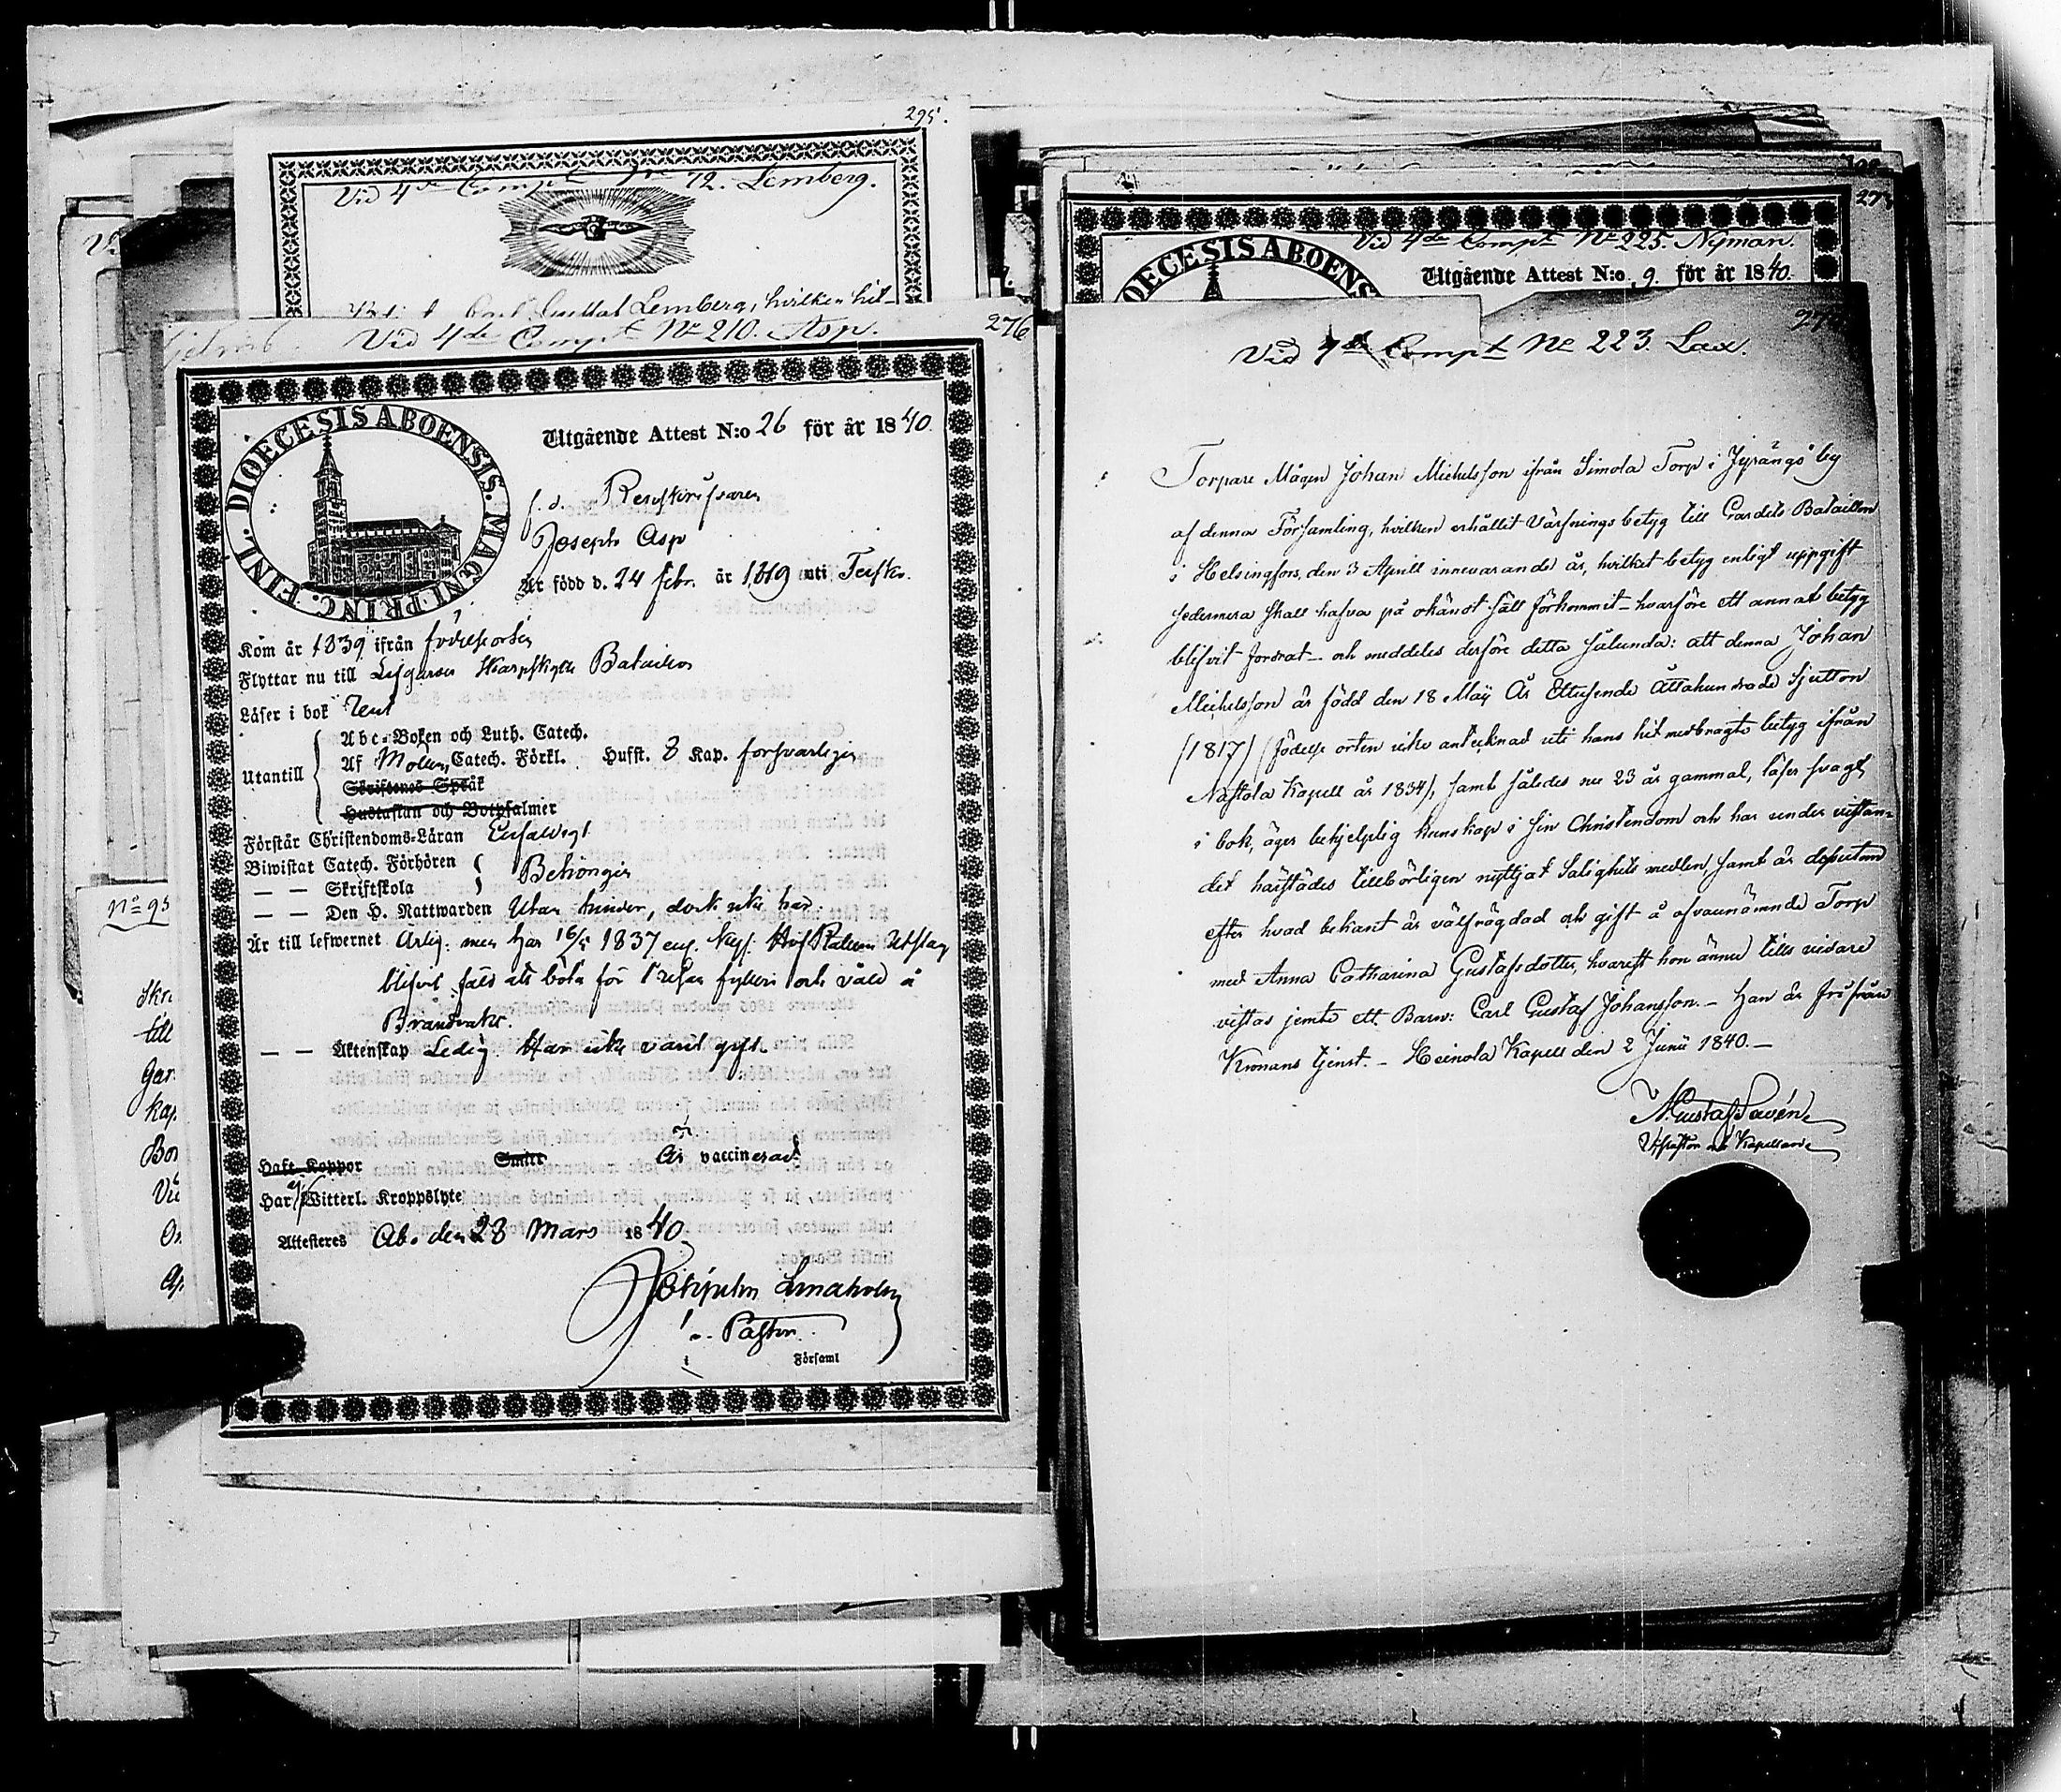 295.
Vid 4de Compt No 12. Lemberg.
Carl Gustaf Lemberg, hvilken hit-
276
Vid 4de Compt No 210. Asp.
DIOECESIS ABOENSIS. MAGNI PRINC. FINL.
Utgående Attest N:o 26 för år 1840.
f. d.
Joseph Asp
Är född d. 24 Febr. år 1819 uti
Kom år 1839 ifrån födelseorten
Flyttar nu till Bataillon
Läser i bok Rent
Utantill
Abc-Boken och Luth. Catech.
Af Catech. Förkl. Hufst. 8 Kap. försvarligen
Skriftenes Språk
Hustaflan och Botpsalmer
Förstår Christendoms-Läran Enfaldigt
Biwistat Catech. Förhören
Behörigen
— — Skriftskola
— — Den H. Nattwarden Utan hinder, dock icke här.
Är till lefwernet Ärlig: men har 16/5 1837 enl. Utslag
blifvit fäld att böta för fylleri och våld å
Brandvakt.
— — Äktenskap Ledig. Har icke varit gift.
Haft Koppor Smitt Är vaccinerad
Har ej Witterl. Kroppslyte
Attesteres Åbo den 28 Mars 1840.
Pastor.
Församl
No 95
Skri
till
Gar
Kap
Bor
273
Vid 4de Compt No 225. Nyman.
DIOECESIS ABOENS
Utgående Attest N:o 9. för år 1840.
Vid 4de Compt No 223. Lax.
Torpare Mågen Johan Michelsson ifrån Simola Torp i Jyrängö by
af denna Församling, hvilken erhållit Värfningsbetyg till Gardets Bataillon
i Helsingfors, den 3 Aprill innevarande år, hvilket betyg enligt uppgift
sedermera skall hafva på okänot sätt förkommit — hvarföre ett annat betyg
blifvit fordrat — och meddeles derföre detta sålunda: att denna Johan
Michelsson är född den 18 Maij År Ettusende Åttahundrade Sjutton
(1817) (födelse orten icke antecknad uti hans hit medbragte betyg ifrån
Nastola Kapell år 1834), samt således nu 23 år gammal, läser svagt
i bok, äger behjelplig kunskap i sin Christendom och har under vistan-
det härstädes tillbörligen nyttjat Salighets medlen, samt är dessutom
efter hvad bekant är välfrägdad och gift å ofvannämnde Torp
med Anna Catharina Gustafsdotter, hvarest hon ännu tills vidare
vistas jemte ett Barn: Carl Gustaf Johansson. — Han är fri från
Kronans tjenst. — Heinola Kapell den 2 Junii 1840. —
N. Gustaf Savén
V. Pastor och Kapellan